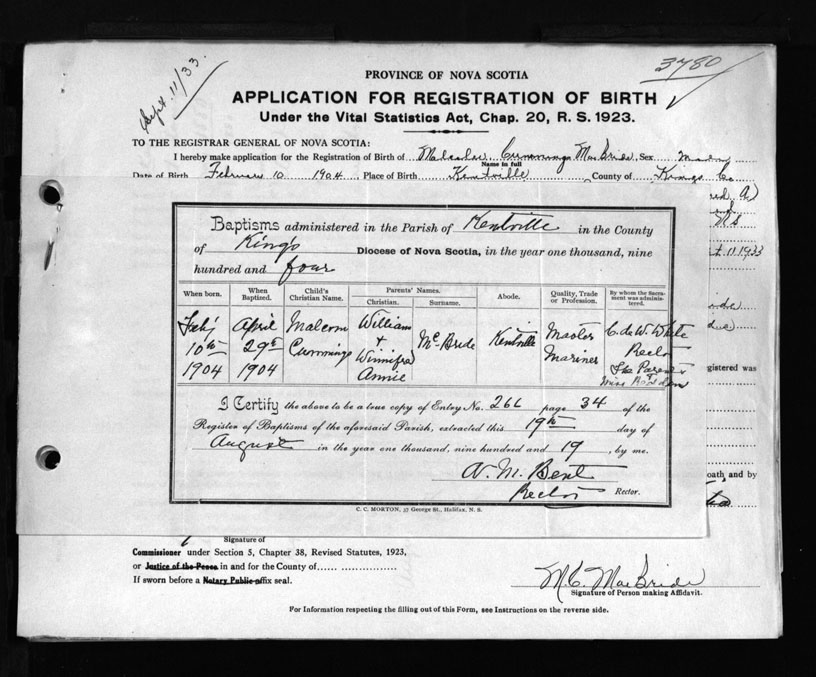 Sept. 11/33.
3780
PROVINCE OF NOVA SCOTIA
APPLICATION FOR REGISTRATION OF BIRTH
Under the Vital Statistics Act, Chap. 20, R. S. 1923.
TO THE REGISTRAR GENERAL OF NOVA SCOTIA:
I hereby make application for the Registration of Birth of Malcolm Cummings MacBride Sex
Name in full
Date of Birth February 10 1904 Place of Birth Kentville County of Kings Co.
N S
t. 11.1933
gistered was
oath, and by
Baptisms administered in the Parish of Kentville in the County
of Kings Diocese of Nova Scotia, in the year one thousand, nine
hundred and four
When born. When Baptized. Child's Christian Name. Parents' Names. Christian. Surname. Abode. Quality, Trade or Profession. By whom the Sacrament was administered.
Feby April Malcom William Mc Bride Kentville Master C. de W. White
10th 29th Cummings + Mariner Rector
1904 1904 Winnifred The Parents
Annie Miss
I Certify the above to be a true copy of Entry No. 266 page 34 of the
Register of Baptisms of the aforesaid Parish, extracted this 19th day of
August in the year one thousand, nine hundred and 19, by me.
A. M. Bent
Rector Rector.
C. C. MORTON, 57 George St., Halifax, N. S.
Signature of
Commissioner under Section 5, Chapter 38, Revised Statutes, 1923,
or Justice of the Peace in and for the County of
If sworn before a Notary Public affix seal.
M. C. MacBride
Signature of Person making Affidavit.
For Information respecting the filling out of this Form, see Instructions on the reverse side.